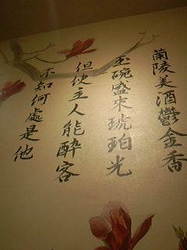 蘭陵美酒鬱金香
玉碗盛來琥珀光
但使主人能醉客
不知何處是他